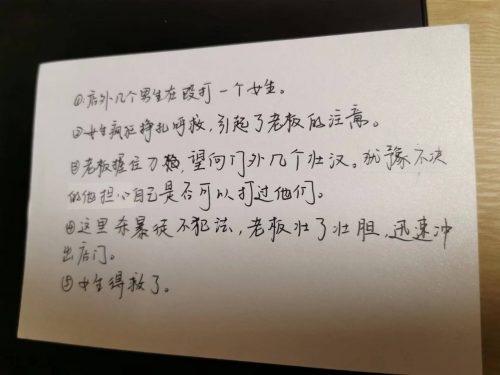 ①店外几个男生在殴打一个女生。
②女生疯狂挣扎呼救,引起了老板的注意。
③老板握住刀柄,望向门外几个壮汉。犹豫不决
的他担心自己是否可以打过他们。
④这里杀暴徒不犯法,老板壮了壮胆,迅速冲
出店门。
⑤女生得救了。